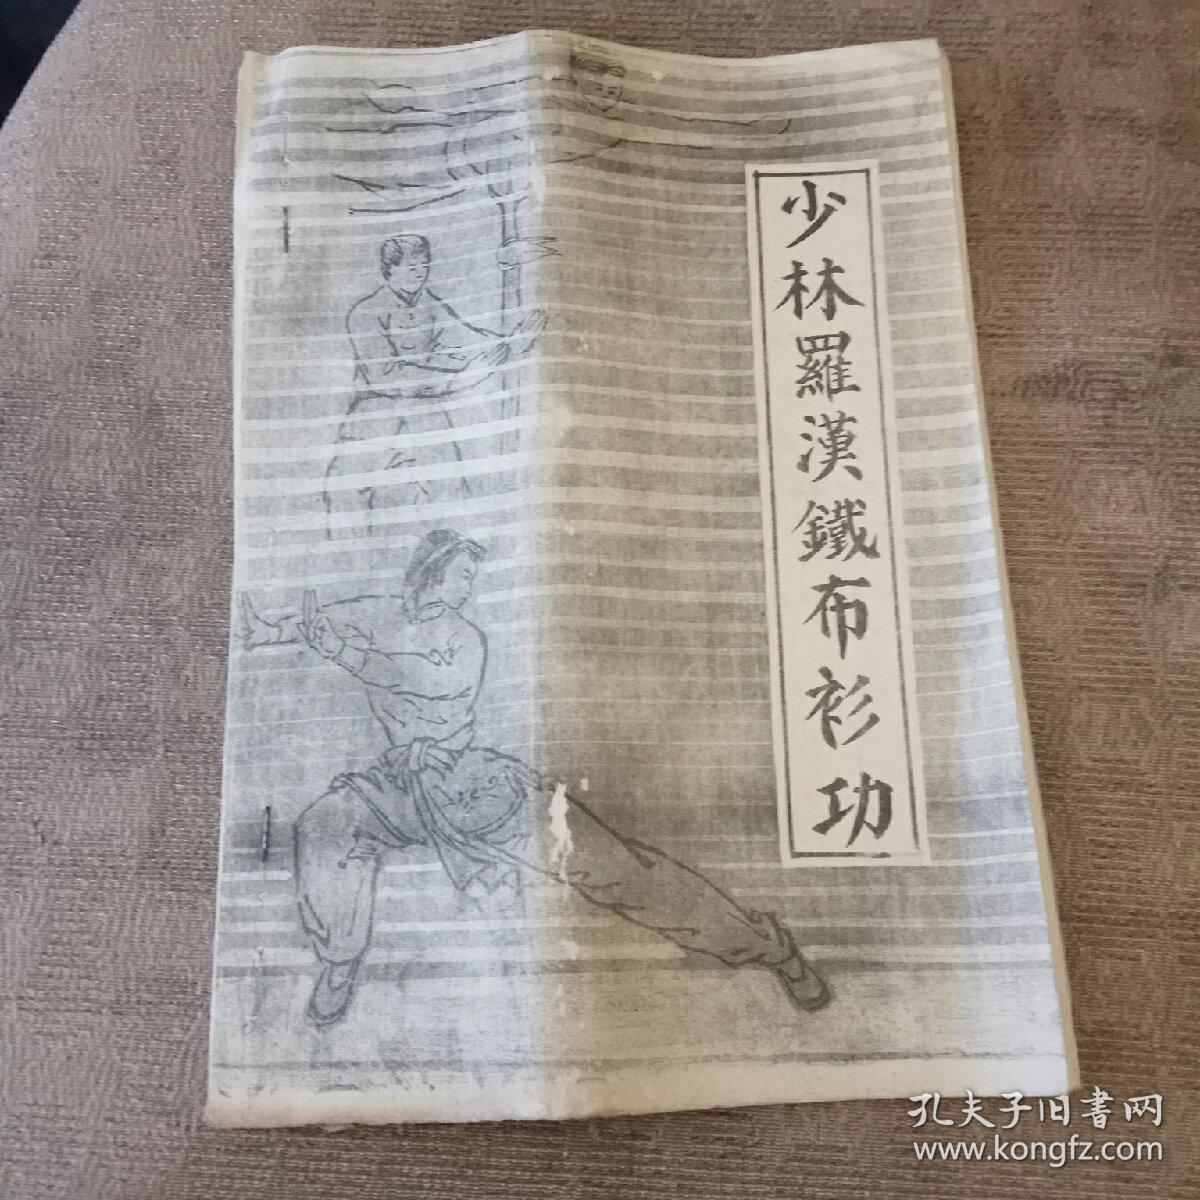 少林羅漢鐵布衫功
孔夫子旧書网
www.kongfz.com